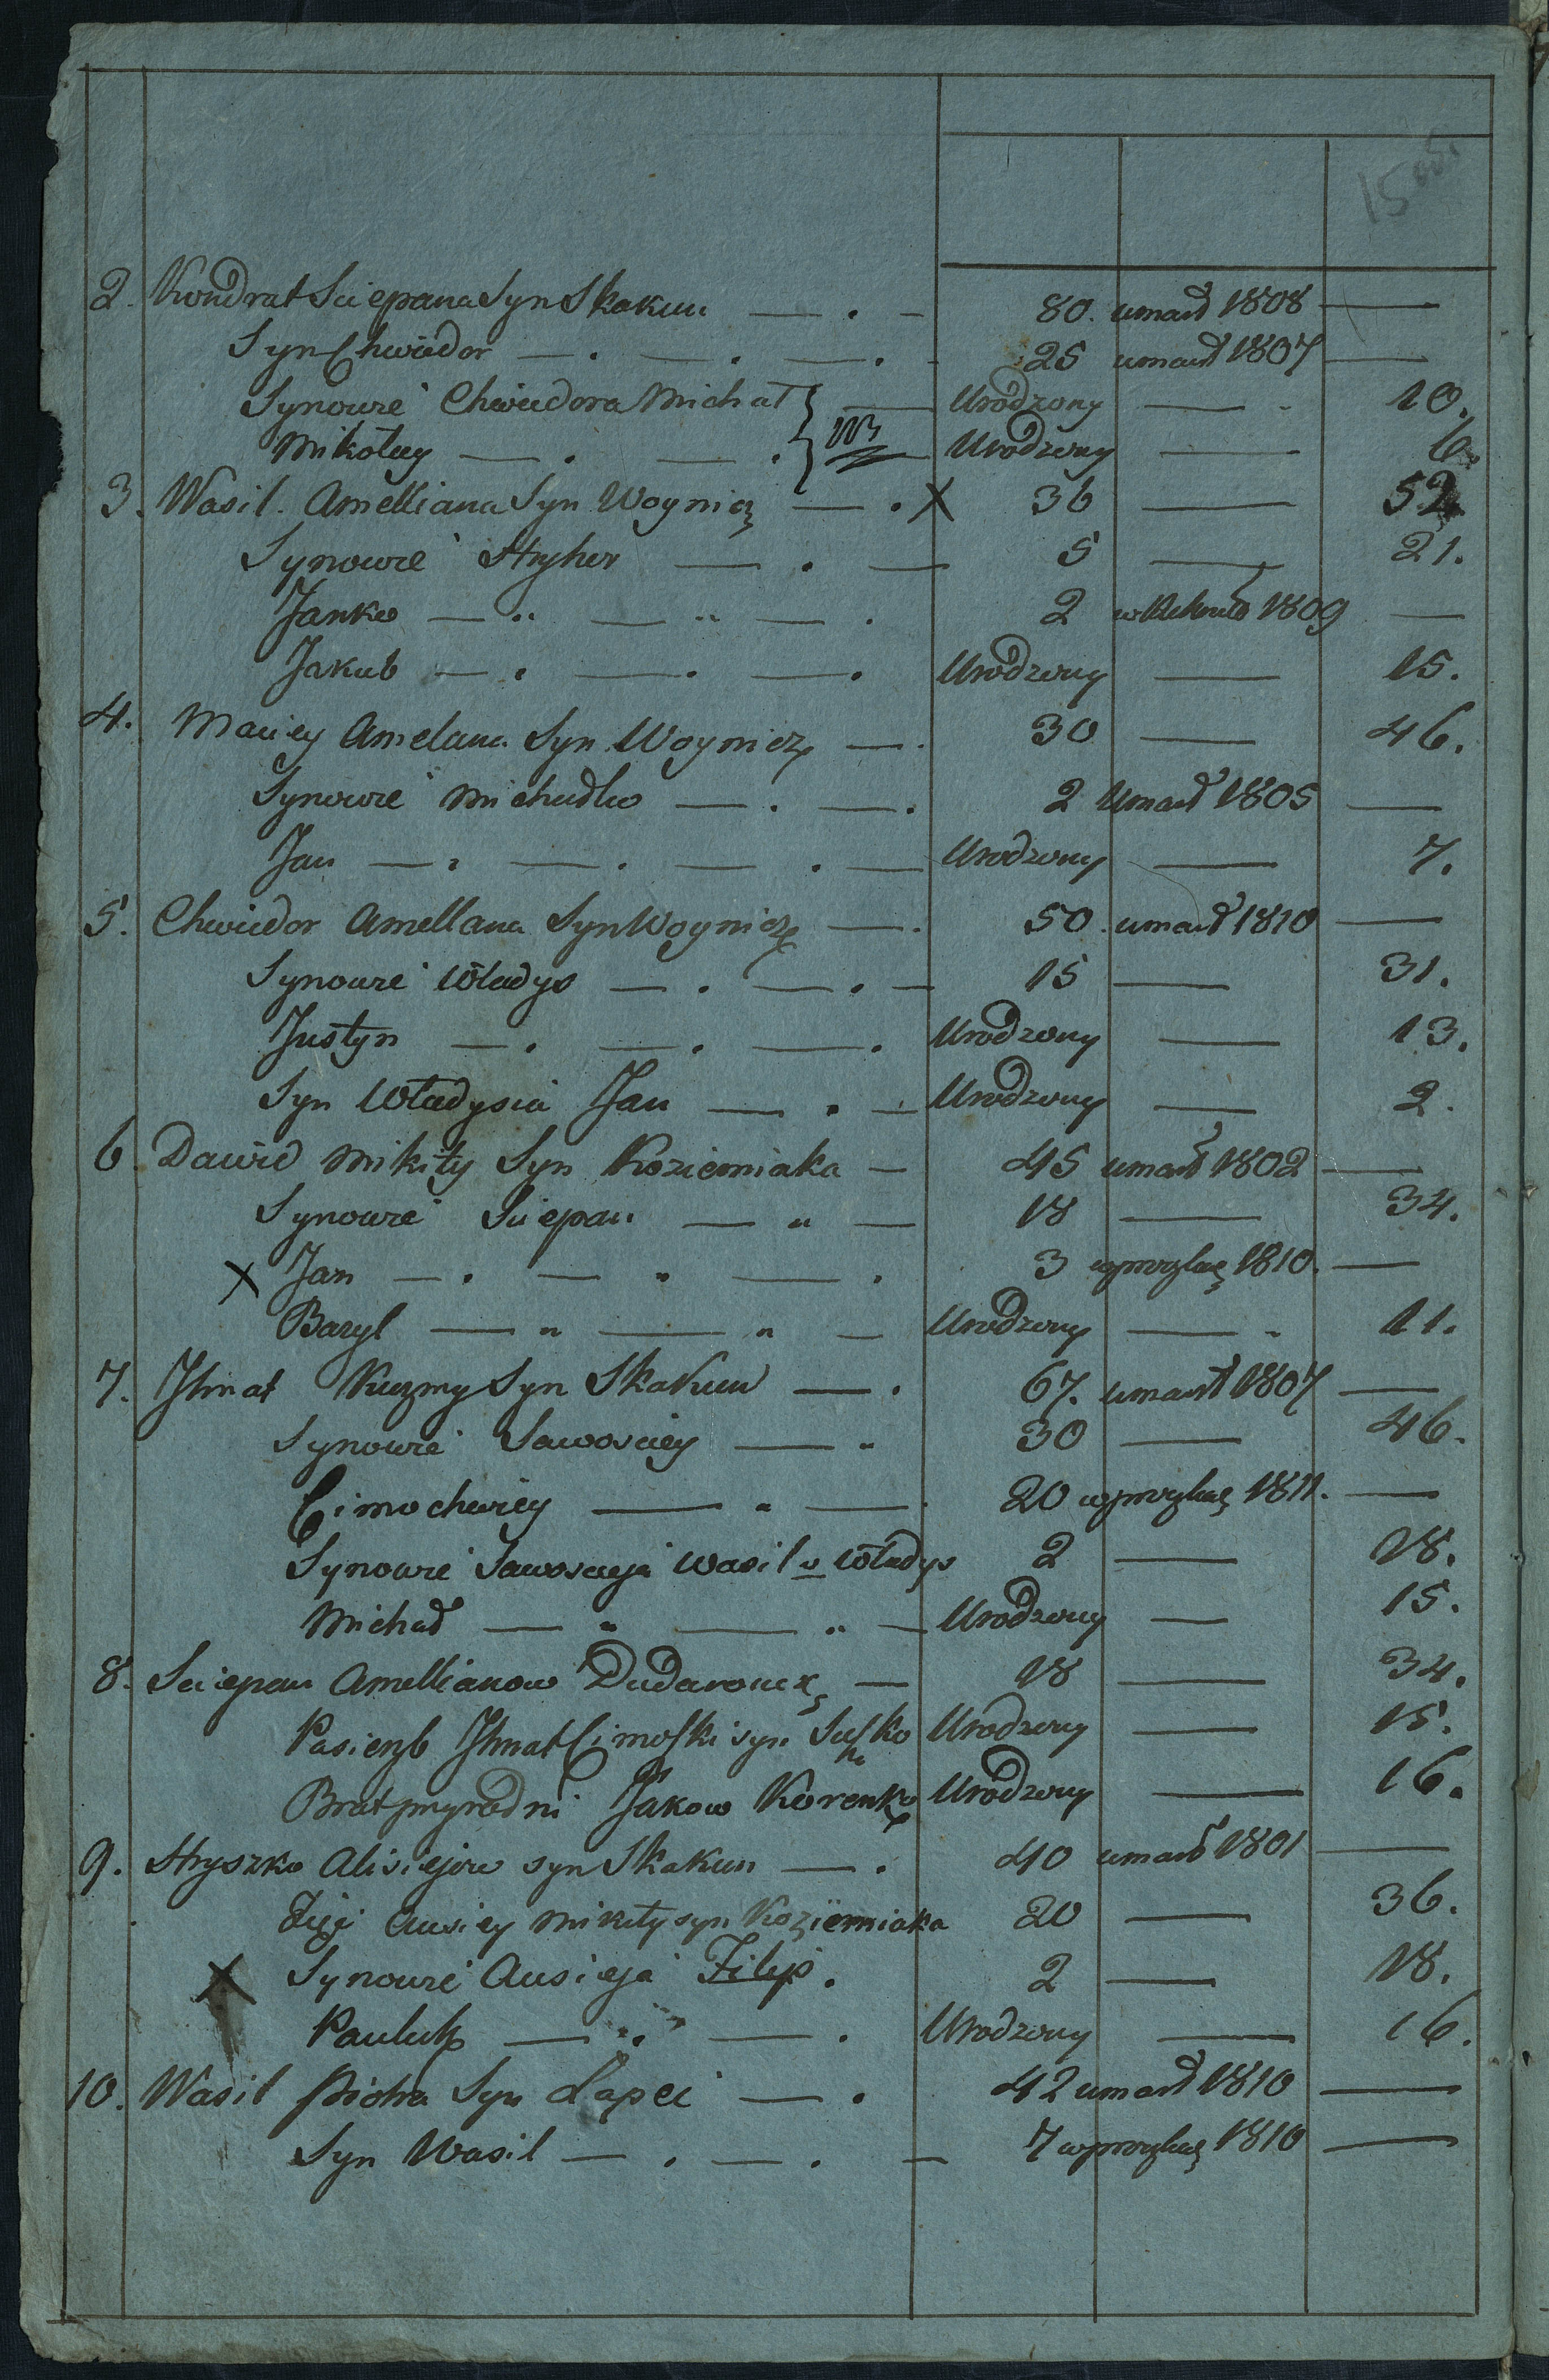 15
2. Kondrat Sciepana Syn Skakun 80. umarł 1808
Syn Chwiedor 25 umarł 1807
Synowie Chwiedora Michał Urodzony 10.
Mikołay Urodzony 6.
3. Wasil Amelliana Syn Woynicz X 36 52
Synowie Hryhor 5 21.
Janko 2 w Rekrut 1809
Jakub Urodzony 15.
4. Maciey Amelana Syn Woynicz 30 46.
Synowie Michałko 2 Umarł 1805
Jan Urodzony 7.
5. Chwiedor Amellana Syn Woynicz 50. umarł 1810
Synowie Władys 15 31.
Justyn Urodzony 13.
Syn Władysia Jan Urodzony 2.
6 Dawid Mikity Syn Koziemiaka 45 umarł 1802
Synowie Sciepan 18 34.
X Jan 3 1810.
Bazyl Urodzony 11.
7. Ihnat Kuzmy Syn Skakun 67. umarł 1807
Synowie Sawosciey 30 46.
Cimochwiey 20 1811.
Synowie Sawoscieja Wasil v Władys 2 18.
Michał Urodzony 15.
8. Sciepan Amellianow Dudaronek 18 34.
Pasierzb Ihnat Cimoszki syn Urodzony 15.
Brat przyrodni Jakow Korenko Urodzony 16.
9. Hryszko Alisiejow syn Skakun 40 umarł 1801
Zięć Ausiey Mikity syn Koziemiaka 20 36.
X Synowie Ausieja Filip. 2 18.
Pauluk Urodzony 16.
10. Wasil Piotra Syn Łapci 42 umarł 1810
Syn Wasil 7 1810